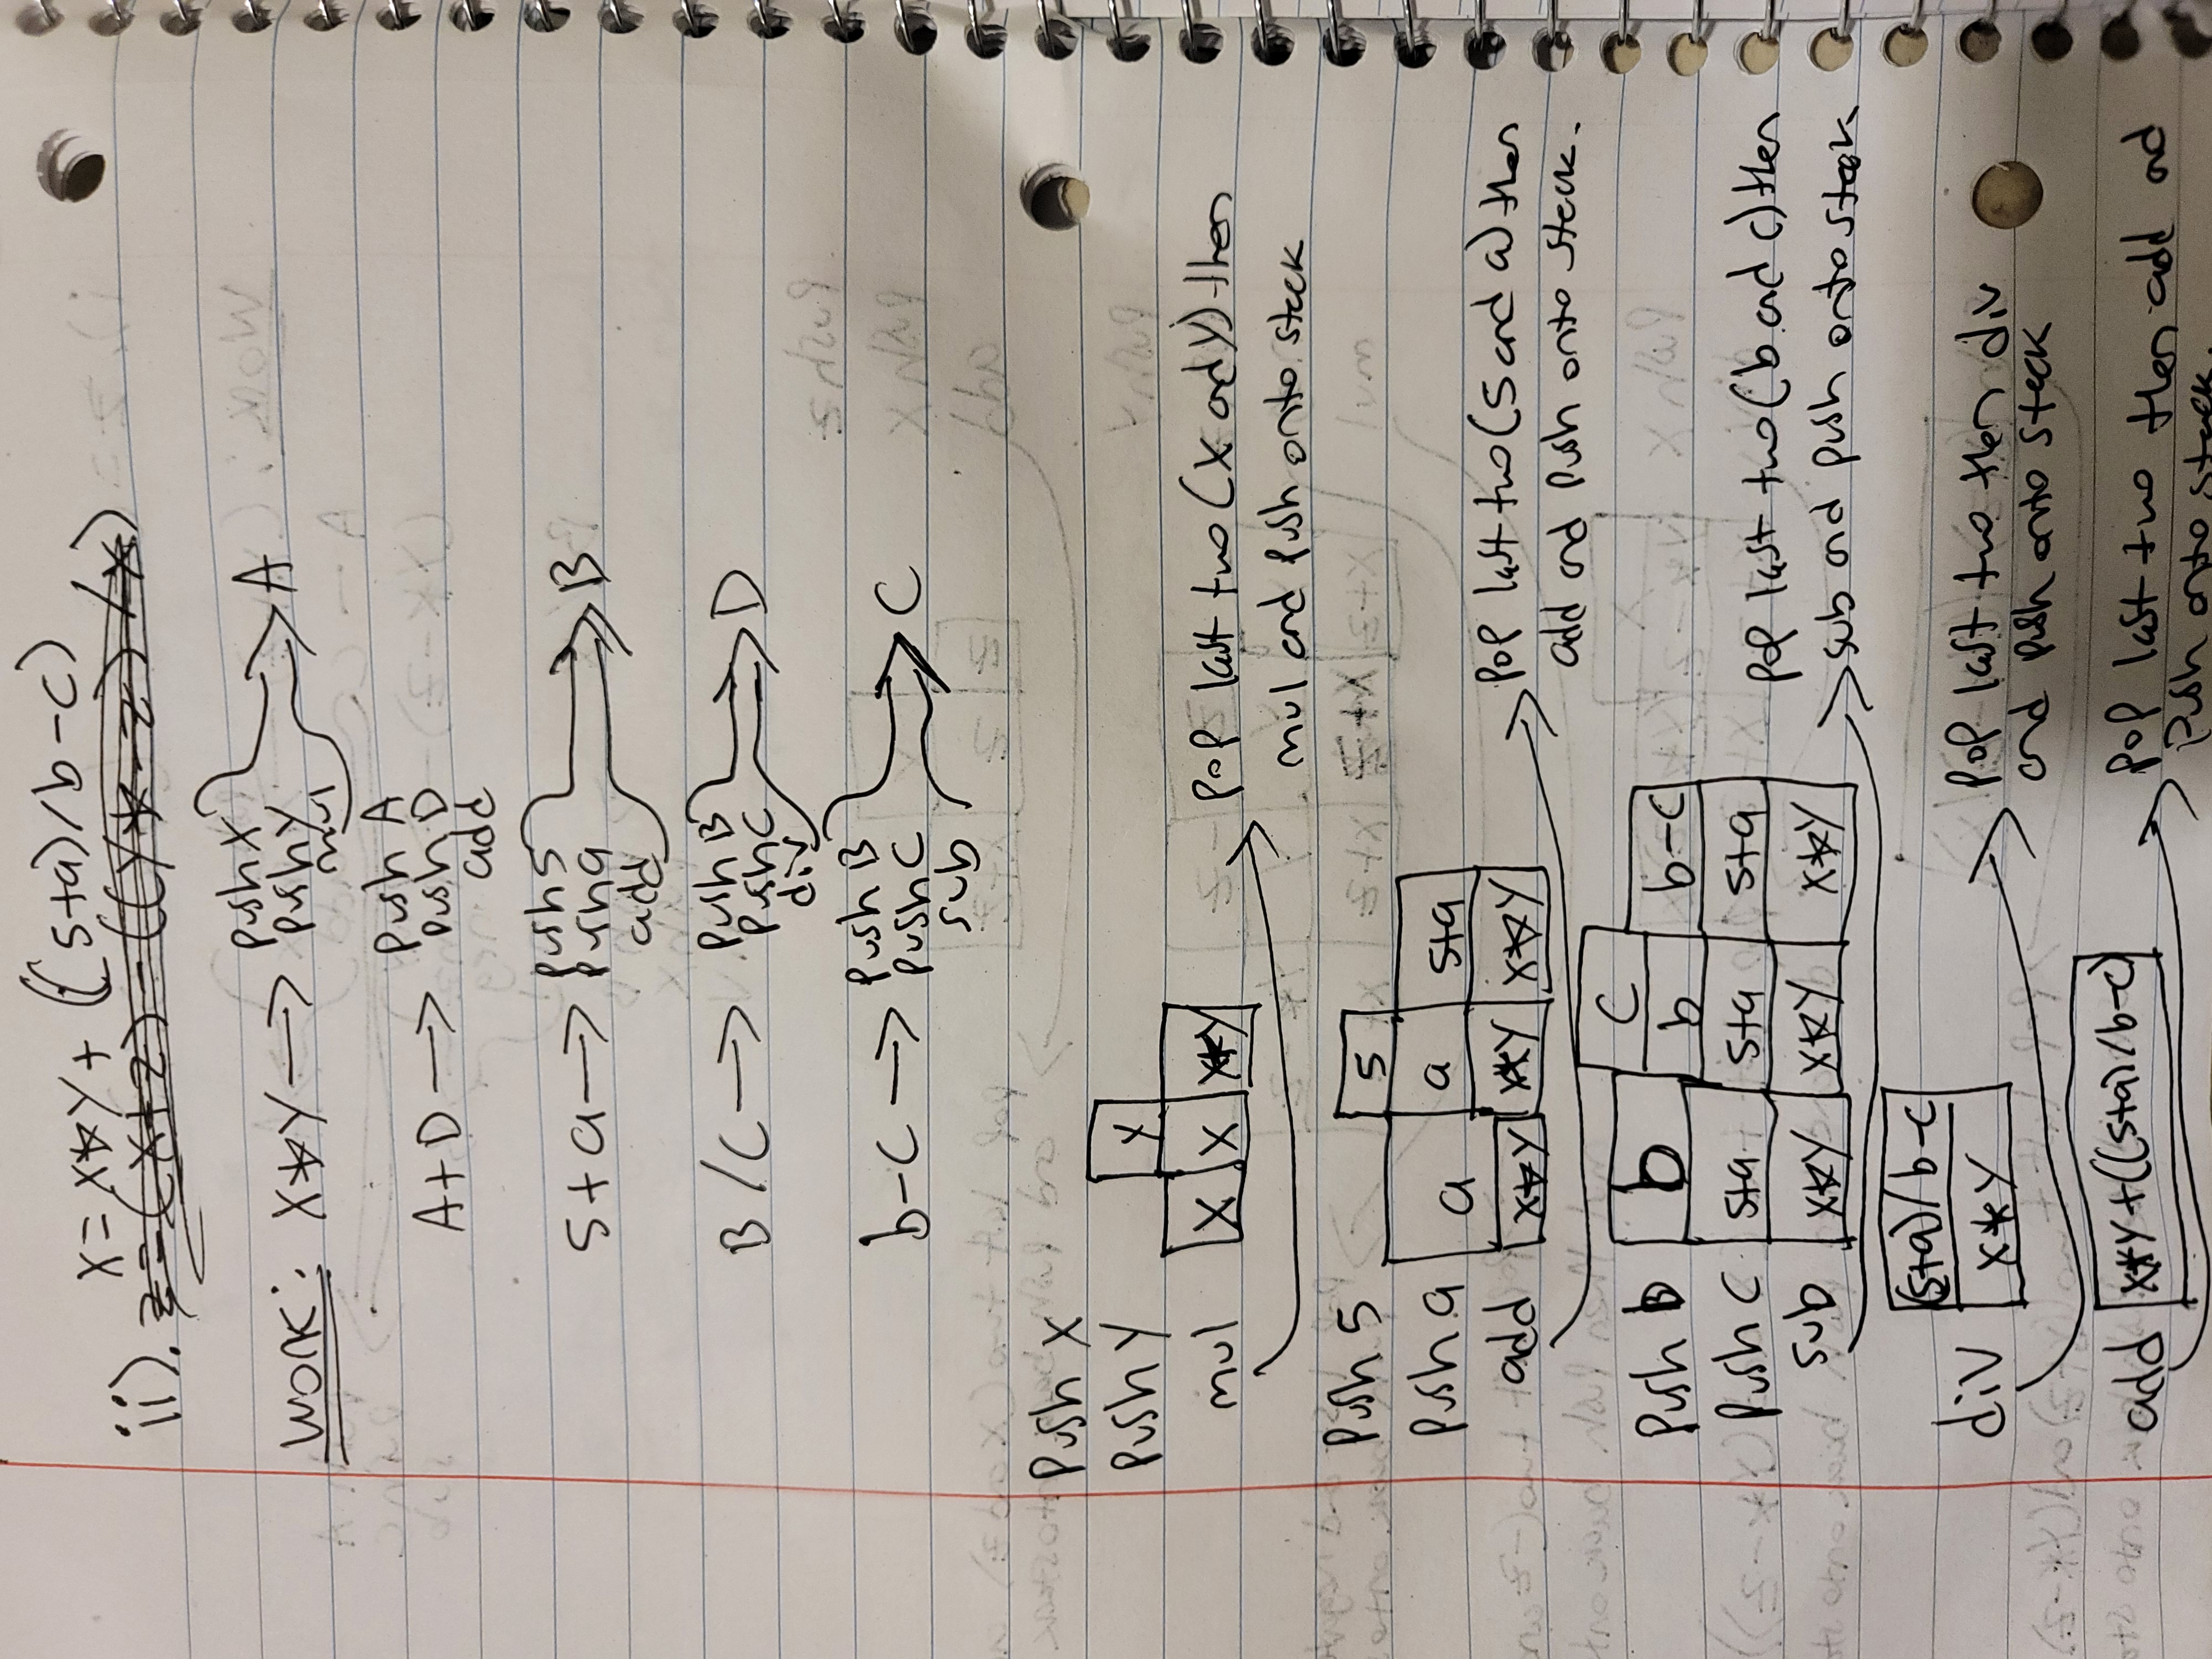 x = x*y + ((5+a)/b-c)
ii). z=(x+z)-((y*-z)/x)
Work: x*y → push x
push y
mul
A
A+D → push A
push D
add
5+a → push 5
push a
add
B
B/C → push B
push C
div
D
b-c → push B
push C
sub
C
Push x
Push y
mul
y
x x x*y
pop last two (x and y) then
mul and push onto stack
Push 5
Push a
add
5
a a 5+a
x*y x*y x*y
pop last two (5 and a) then
add and push onto stack.
Push b
Push c
sub
c
b b b-c
5+a 5+a 5+a
x*y x*y x*y
pop last two (b and c) then
sub and push onto stack
div
(5+a)/b-c
x*y
pop last two then div
and push onto stack
add x*y+((5+a)/b-c)
pop last two then add and
push onto stack.